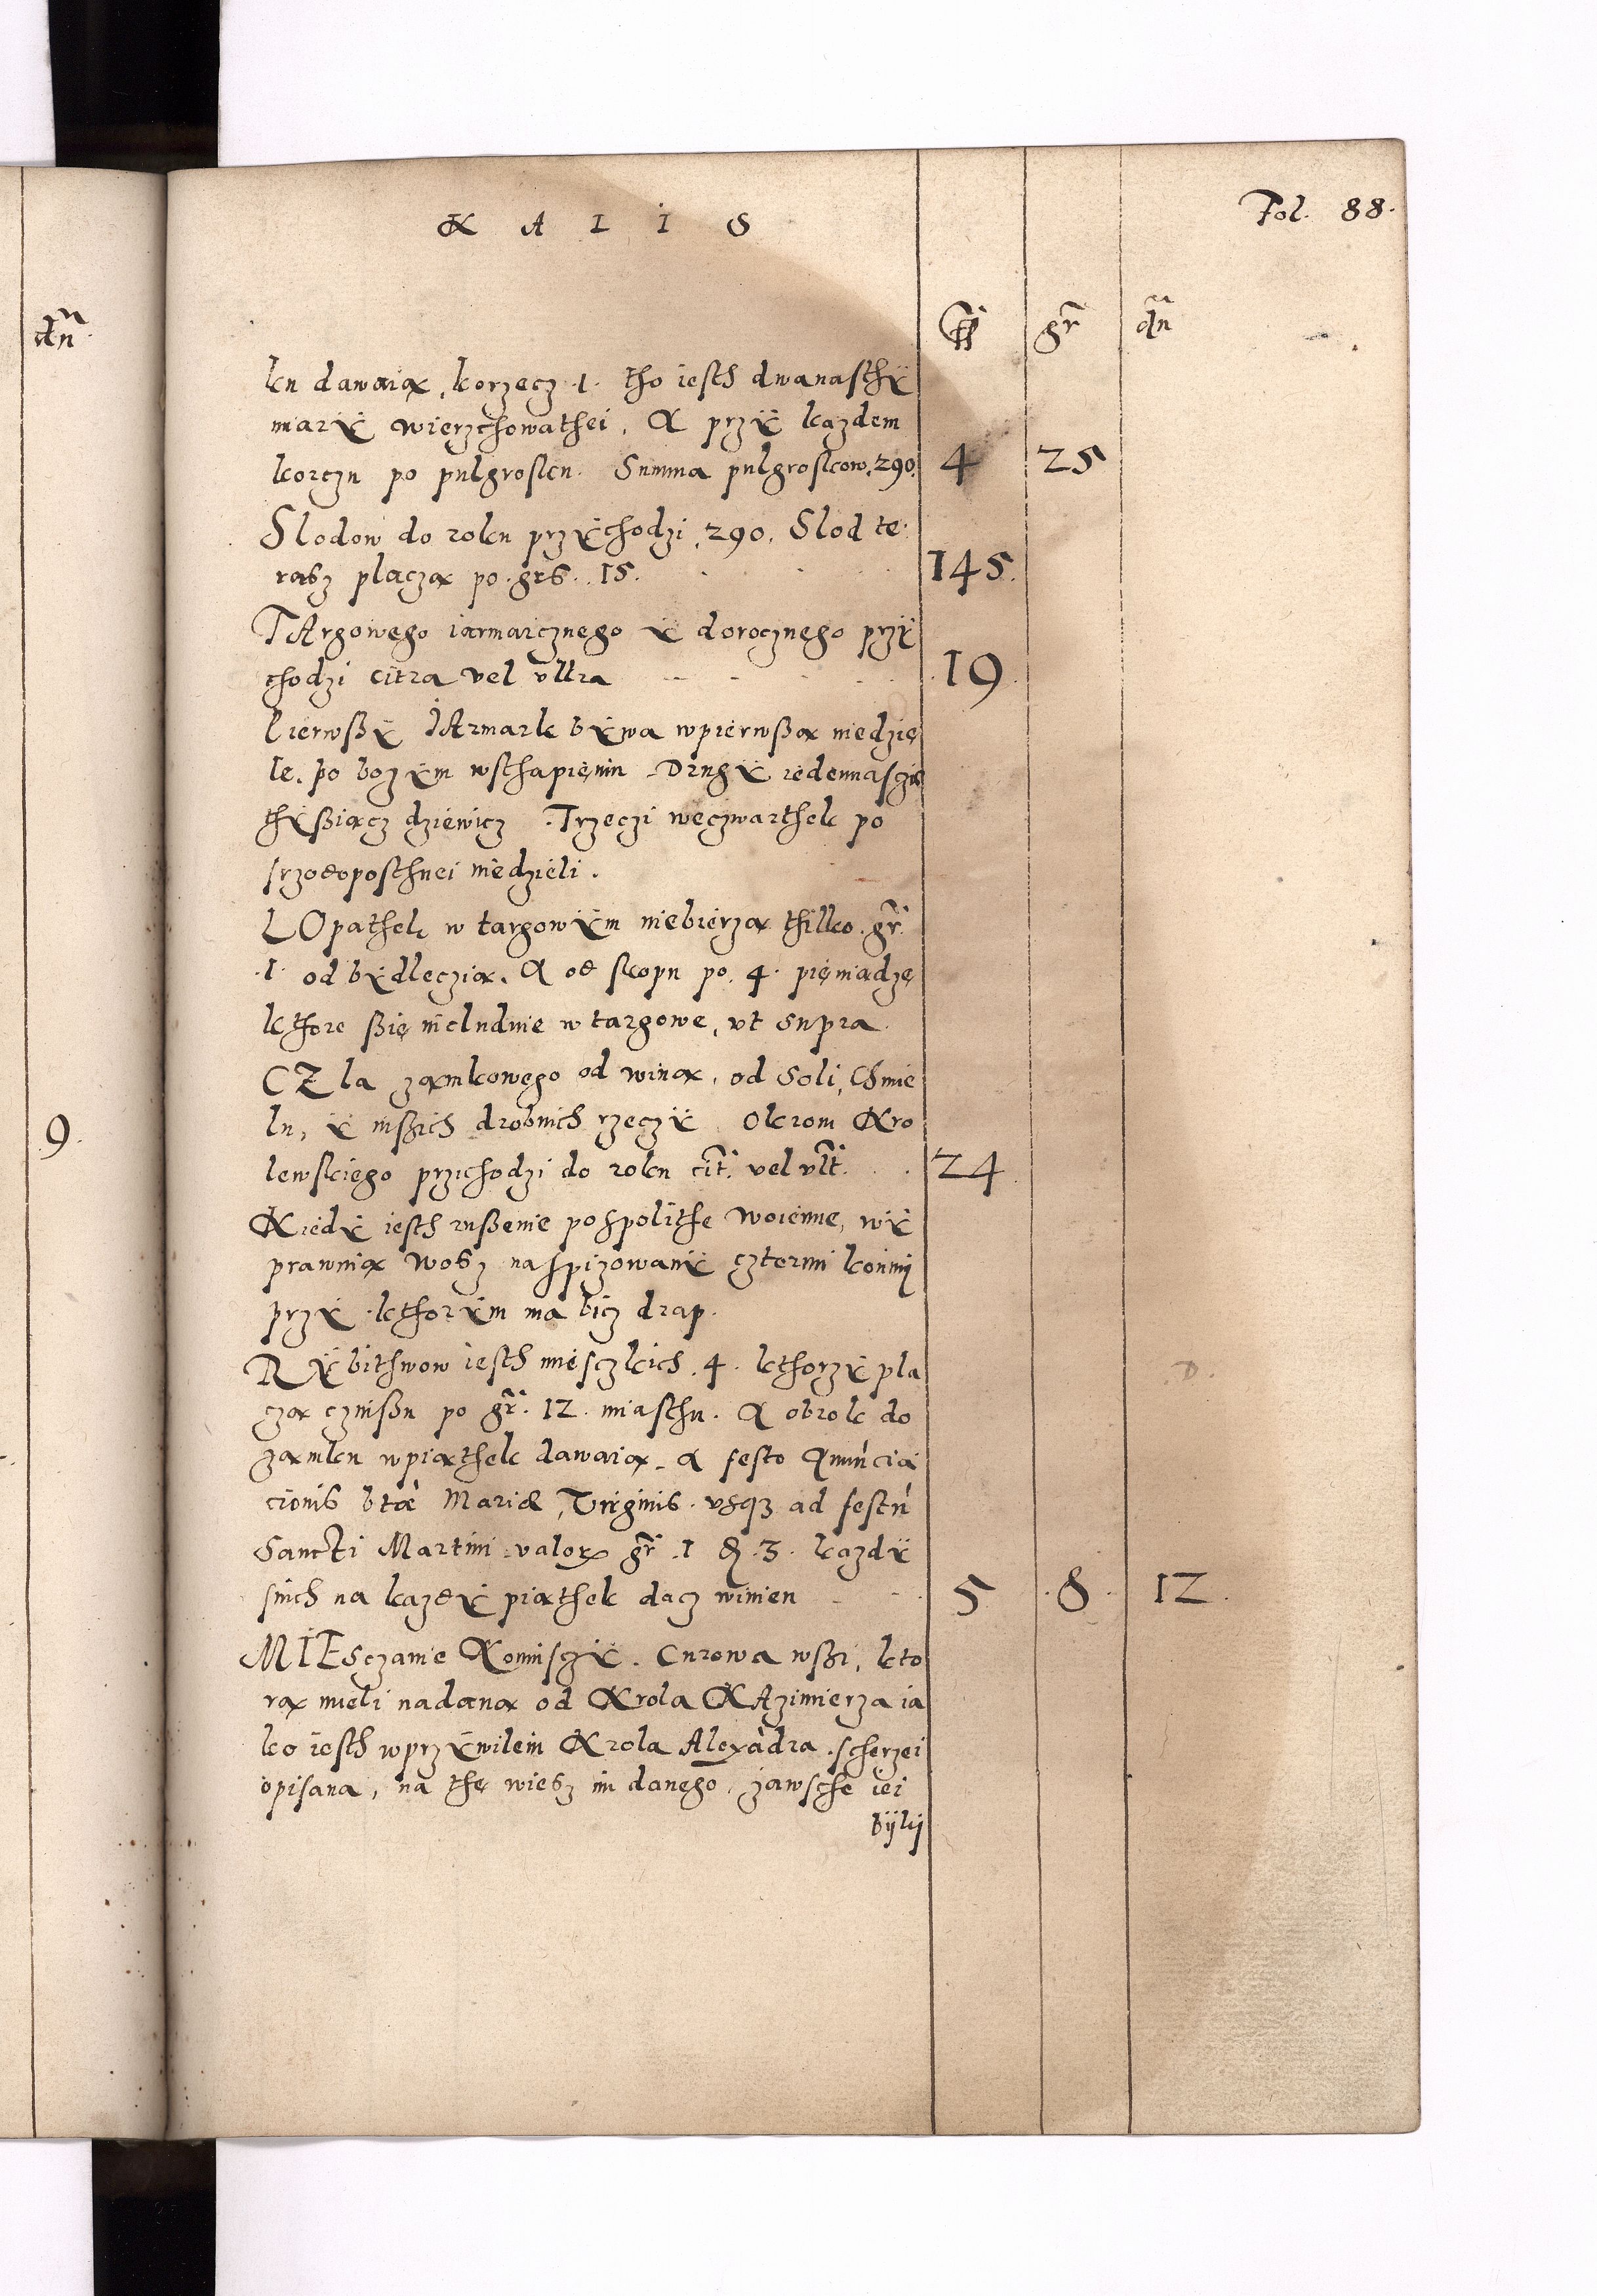 Fol. 88.
K A L I S
fl gr̃ dñ
dñ
ku dawaią, korzecz .1. tho iesth dwanasthÿ
miarÿ wierzchowathei. A przÿ kazdem
korczu po pulgrosku. Summa pulgroskow .290. 4 25
Slodow do roku przÿchodzi .290. Slod te
rasz placzą po grs. 15. 145.
TArgowego iarmarcznego ÿ dorocznego przÿ
chodzi citra vel vltra 19
Pierwszÿ JArmark bÿwa wpierwszą niedzie
le. po bozÿm wsthapieniu Drugÿ iedennasczie
thÿsziącz dziewicz. Trzeczi weczwarthek po
srzodoposthnei niedzieli.
LOpathek w targowÿm niebierzą thilko. gr̃.
.1. od bÿdlęczia. A od skopu po .4. pięniadzę
kthore szię nicludnie w targowe, vt supra.
CZla zamkowego od wina, od soli, Chmie
lu, ÿ inszich drobnich rzeczÿ Okrom Kro
lewskiego przichodzi do roku cit̃. vel vlt̃. 24
9.
Kiedÿ iesth ruszenie pospolithe woienne, wÿ
prawuią wosz naspizowanÿ cztermi konmi
przÿ kthorÿm ma bicz drap.
RÿbithwoW iesth miesczkich .4. kthorzÿ pla
czą czinszu po gr̃. 12. miasthu. A obrok do
zamku wpiąthek dawaią. a festo Annũcia
cionis btæ̃ Mariæ Virginis. vsqȝ ad festũ
Sancti Martini valoꝝ gr̃ .1 ꝗ .3. kazdÿ
snich na kazdÿ piąthek dacz winien 5 .8. 12.
MIEsczanie Koninsczÿ. Curowa wszi, kto
rą mieli nadaną od Krola KAzimierza ia
ko iesth wprzÿwileiu Krola Alexãdra. scherzei
opisana, na thę wiesz im danego, zawsche iei
bÿlÿ